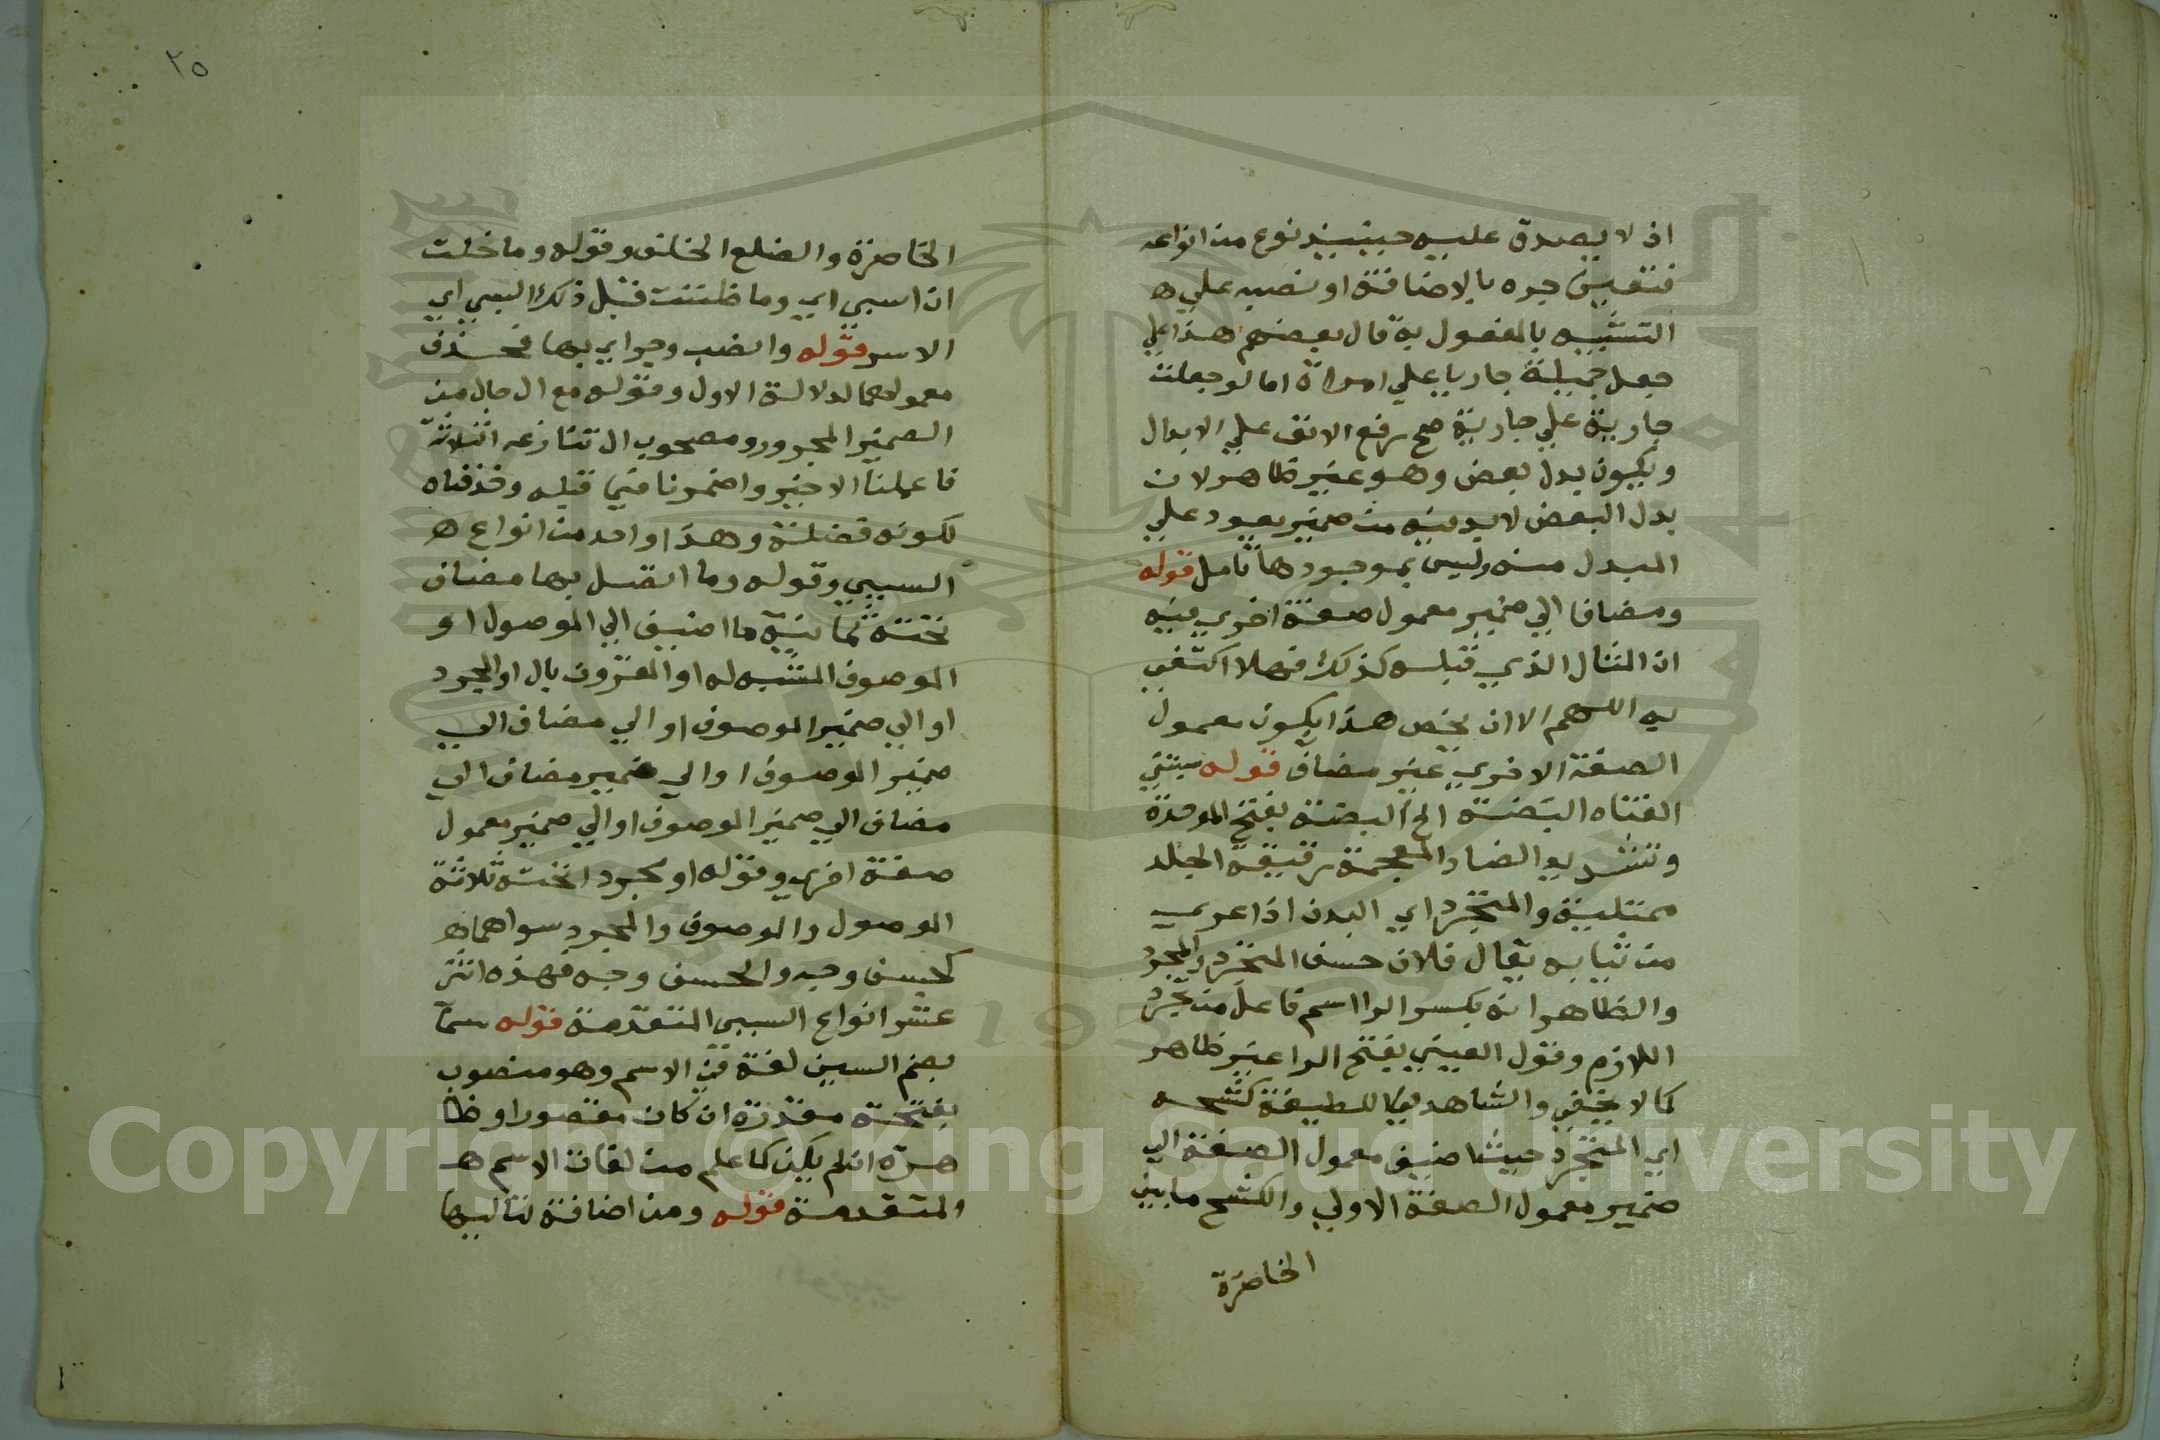 اذ لا يصدق عليه حينيذ نوع من انواعه
فتعين جره بالاضافة او نصبه علي ه
التشبيه بالمفعول به قال بعضهم هذا علي
جعل جميلة جاريا علي امراة اما لو جعلت
جارية علي جارية صح رفع الانف علي الابدال
ويكون بدل بعض وهو غير ظاهر لان
بدل البعض لابد فيه من ضمير يعود علي
المبدل منه وليس بموجود ها تامل قوله
ومضافا الي ضمير معمول صفة اخري فيه
ان المثال الذي قبله كذلك فهلا اكتفي
به اللهم الا ان يخص هذا بكون معمول
الصفة الاخري غير مضاف قوله سبتني
الفتاه البضة الخ البضة بفتح الموحدة
وتشديد الضاد المعجمة رقيقة الجلد
ممتلية والمتجرد اي البدن اذا عري
من ثيابه يقال فلان حسن المتجرد والمجرد
والظاهر انه بكسر الرا اسم فاعل من تجرد
اللازم وقول العيني بفتح الرا غير ظاهر
كما لا يخفي والشاهد في اللطيفة كشحه
اي المتجرد حيث اضيف معمول الصفة الي
ضمير معمول الصفة الاولي والكشح ما بين
الخاصرة
٢٥
الخاصرة والضلع الخلف وقوله وما خلت
ان اسبي اي وما ظننت قبل ذلك السبي اي
الاسر قوله وانصب وجر اي بها فحذف
معمولهما لدلالة الاول وقوله مع ال حال من
الضمير المجرور ومصحوب ال تنازعه الثلاثة
فاعملنا الاخير واضمرنا فيما قبله وحذفناه
لكونه فضلة وهذا واحد من انواع ه
السببي وقوله وما اتصل بها مضاف
تحته ثمانية ما اضيف الي الموصول او
الموصوف المشبه له او المقرون بال او المجرد
او الي ضمير الموصوف او الي مضاف الي
ضمير الموصوف او الي ضمير مضاف الي
مضاف الي ضمير الموصوف او الي ضمير معمول
صفة اخري وقوله او مجردا تحته ثلاثة
الموصول والموصوف والمجرد سواهما ه
كحسن وجه والحسن وجه فهذه اثنى
عشر انواع السببي المتقدمة قوله سما
بضم السين لغة في الاسم وهو منصوب
بفتحة مقدرة ان كان مقصورا وظا
هرة ان لم يكن كما علم من لغات الاسم ه
المتقدمة قوله ومن اضافة لتاليها